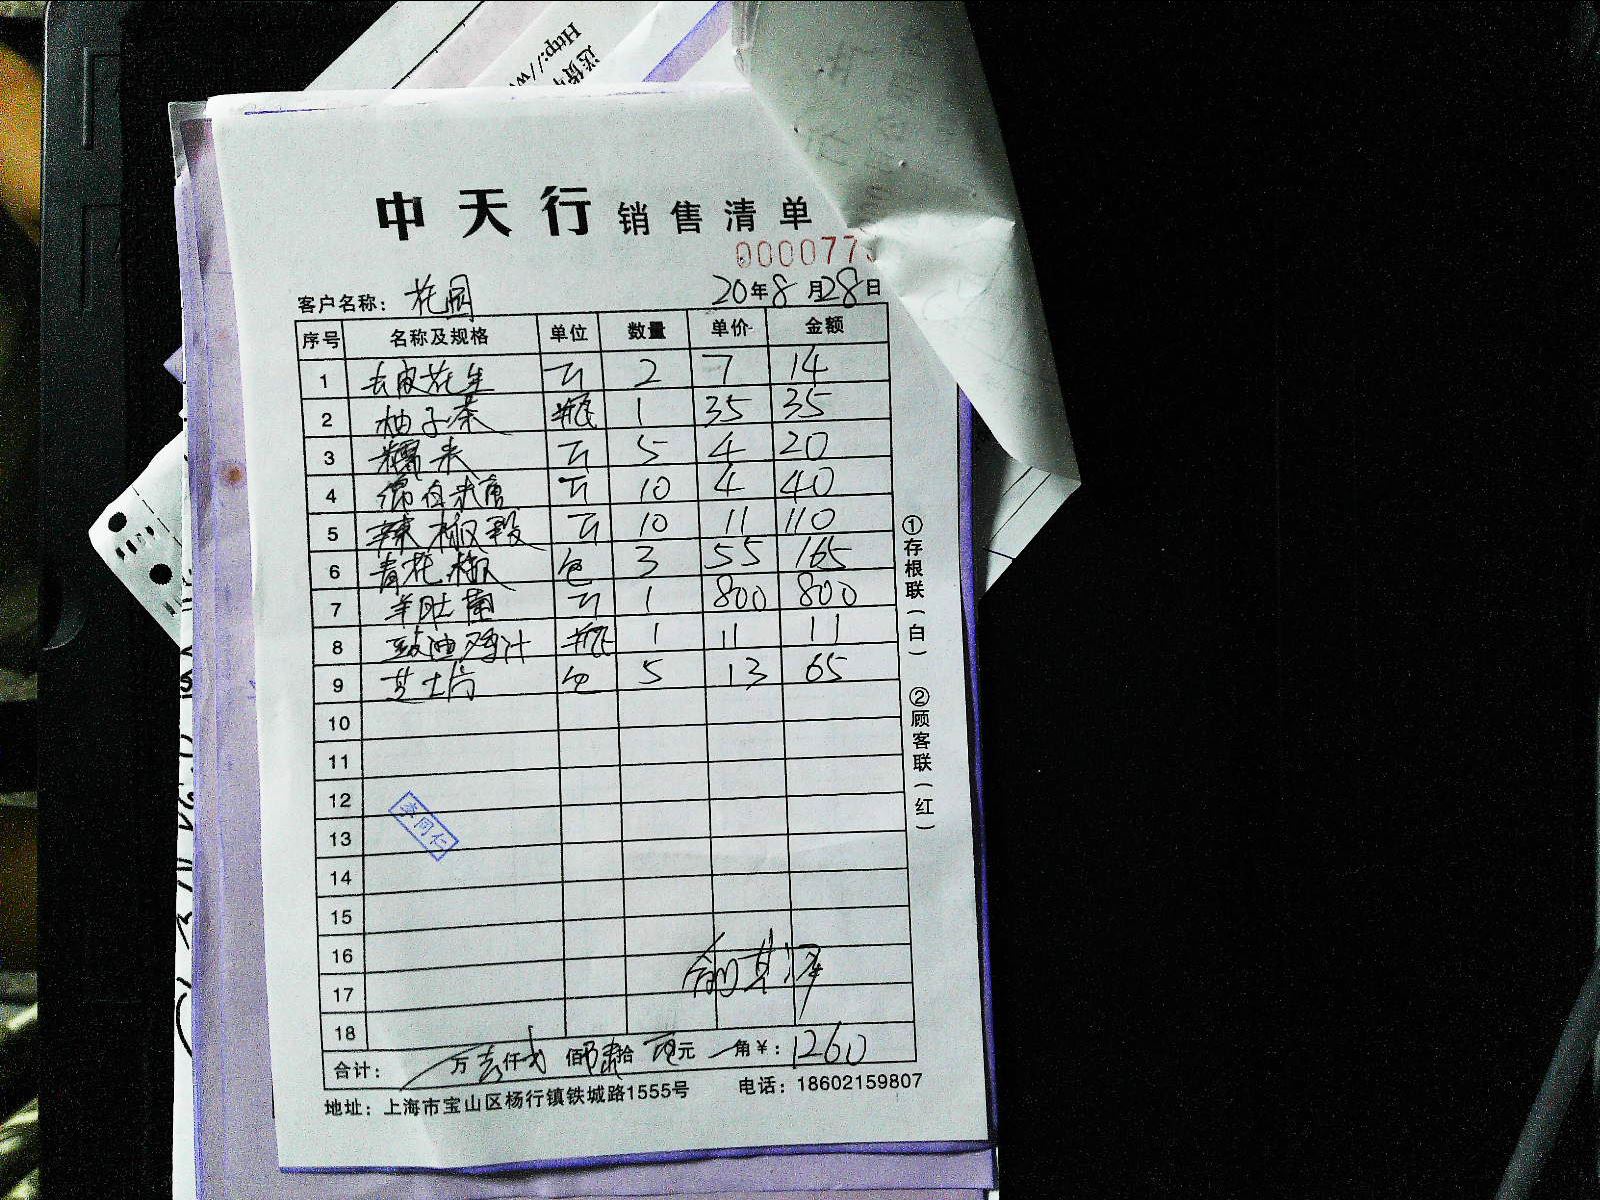 送货
Http://w
中天行 销售清单
000077
客户名称： 花园 20年8月28日
序号 名称及规格 单位 数量 单价 金额
1 去皮花生 斤 2 7 14
2 柚子茶 瓶 1 35 35
3 糯米 斤 5 4 20
4 绵白米唐 斤 10 4 40
5 辣椒段 斤 10 11 110
6 青花椒 包 3 55 165
7 羊肚菌 斤 1 800 800
8 豉油鸡汁 瓶 1 11 11
9 芝士片 包 5 13 65
10
11
12
13
李同仁
14
15
16
17
18
合计： 万 仟 佰 拾 元 角 ¥： 1260
地址：上海市宝山区杨行镇铁城路1555号 电话：18602159807
①存根联（白） ②顾客联（红）